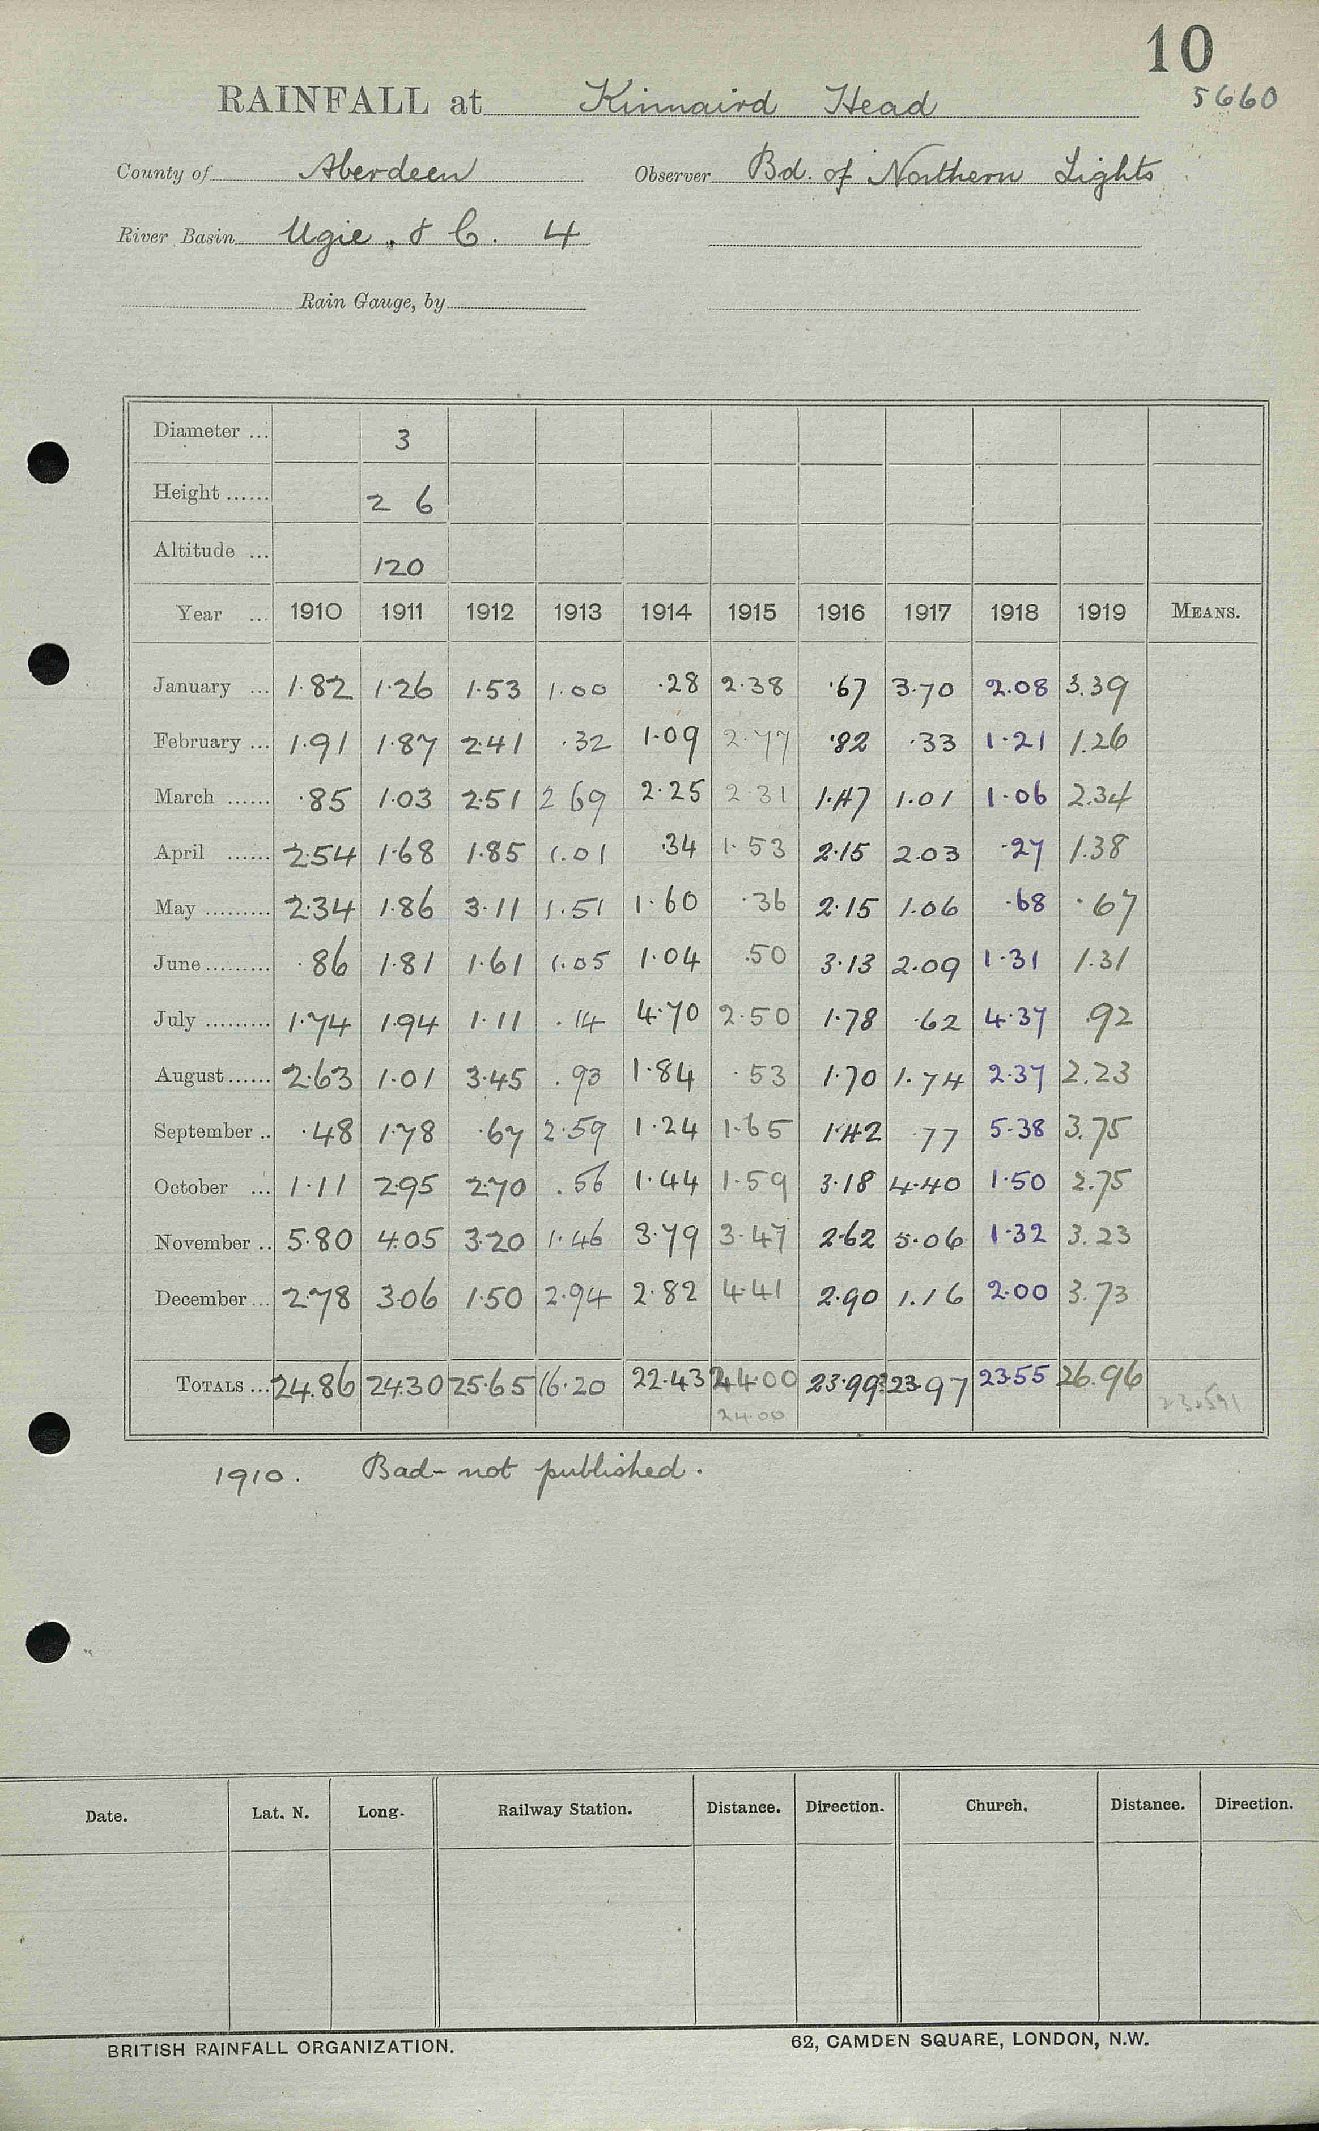 10
RAINFALL at Kinnaird Head 5660
County of Aberdeen Observer Bd. of Northern Lights
River Basin Ugie, & C. 4
Rain Gauge, by
Diameter ... 3
Height ...... 2 6
Altitude ... 120
Year ... 1910 1911 1912 1913 1914 1915 1916 1917 1918 1919 MEANS.
January ... 1.82 1.26 1.53 1.00 .28 2.38 .67 3.70 2.08 3.39
February ... 1.91 1.87 2.41 .32 1.09 2.77 .82 .33 1.21 1.26
March ...... .85 1.03 2.51 2 69 2.25 2 31 1.47 1.01 1.06 2.34
April ...... 2.54 1.68 1.85 1.01 .34 1.53 2.15 2.03 .27 1.38
May ......... 2.34 1.86 3.11 1.51 1.60 .36 2.15 1.06 .68 .67
June ......... .86 1.81 1.61 1.05 1.04 .50 3.13 2.09 1.31 1.31
July ......... 1.74 1.94 1.11 .14 4.70 2.50 1.78 .62 4.37 .92
August ...... 2.63 1.01 3.45 .93 1.84 .53 1.70 1.74 2.37 2.23
September .. .48 1.78 .67 2.59 1.24 1.65 1.42 .77 5.38 3.75
October ... 1.11 2.95 2.70 .56 1.44 1.59 3.18 4.40 1.50 2.75
November .. 5.80 4.05 3.20 1.46 3.79 3.47 2.62 5.06 1.32 3.23
December ... 2.78 3.06 1.50 2.94 2.82 4.41 2.90 1.16 2.00 3.73
TOTALS ... 24.86 24.30 25.65 16.20 22.43 24.00 23.99 23.97 23.55 26.96
24.00
1910. Bad - not published.
Date. Lat. N. Long. Railway Station. Distance. Direction. Church. Distance. Direction.
BRITISH RAINFALL ORGANIZATION. 62, CAMDEN SQUARE, LONDON, N.W.